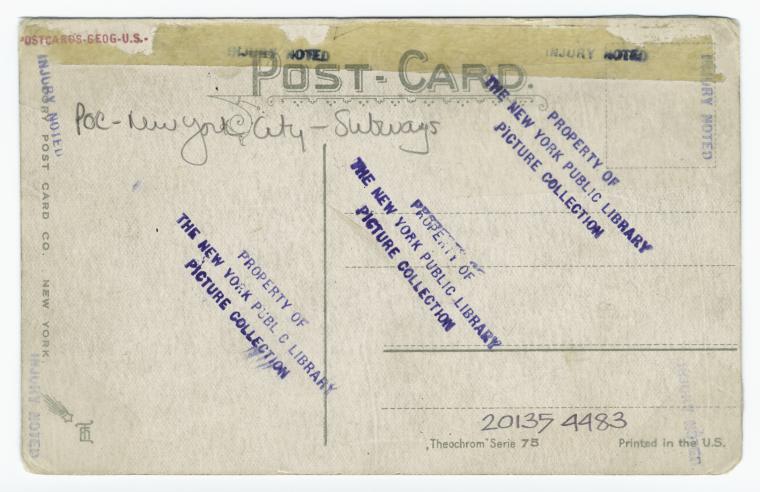 POSTCARDS-GEOG-U.S.-
INJURY NOTED
INJURY NOTED
POST-CARD.
INJURY NOTED
INJURY NOTED
POC-New York City-Subways
PROPERTY OF
THE NEW YORK PUBLIC LIBRARY
PICTURE COLLECTION
PROPERTY OF
THE NEW YORK PUBLIC LIBRARY
PICTURE COLLECTION
PROPERTY OF
THE NEW YORK PUBLIC LIBRARY
PICTURE COLLECTION
POST CARD CO. NEW YORK.
INJURY NOTED
INJURY NOTED
20135 4483
„Theochrom" Serie 75
Printed in the U.S.